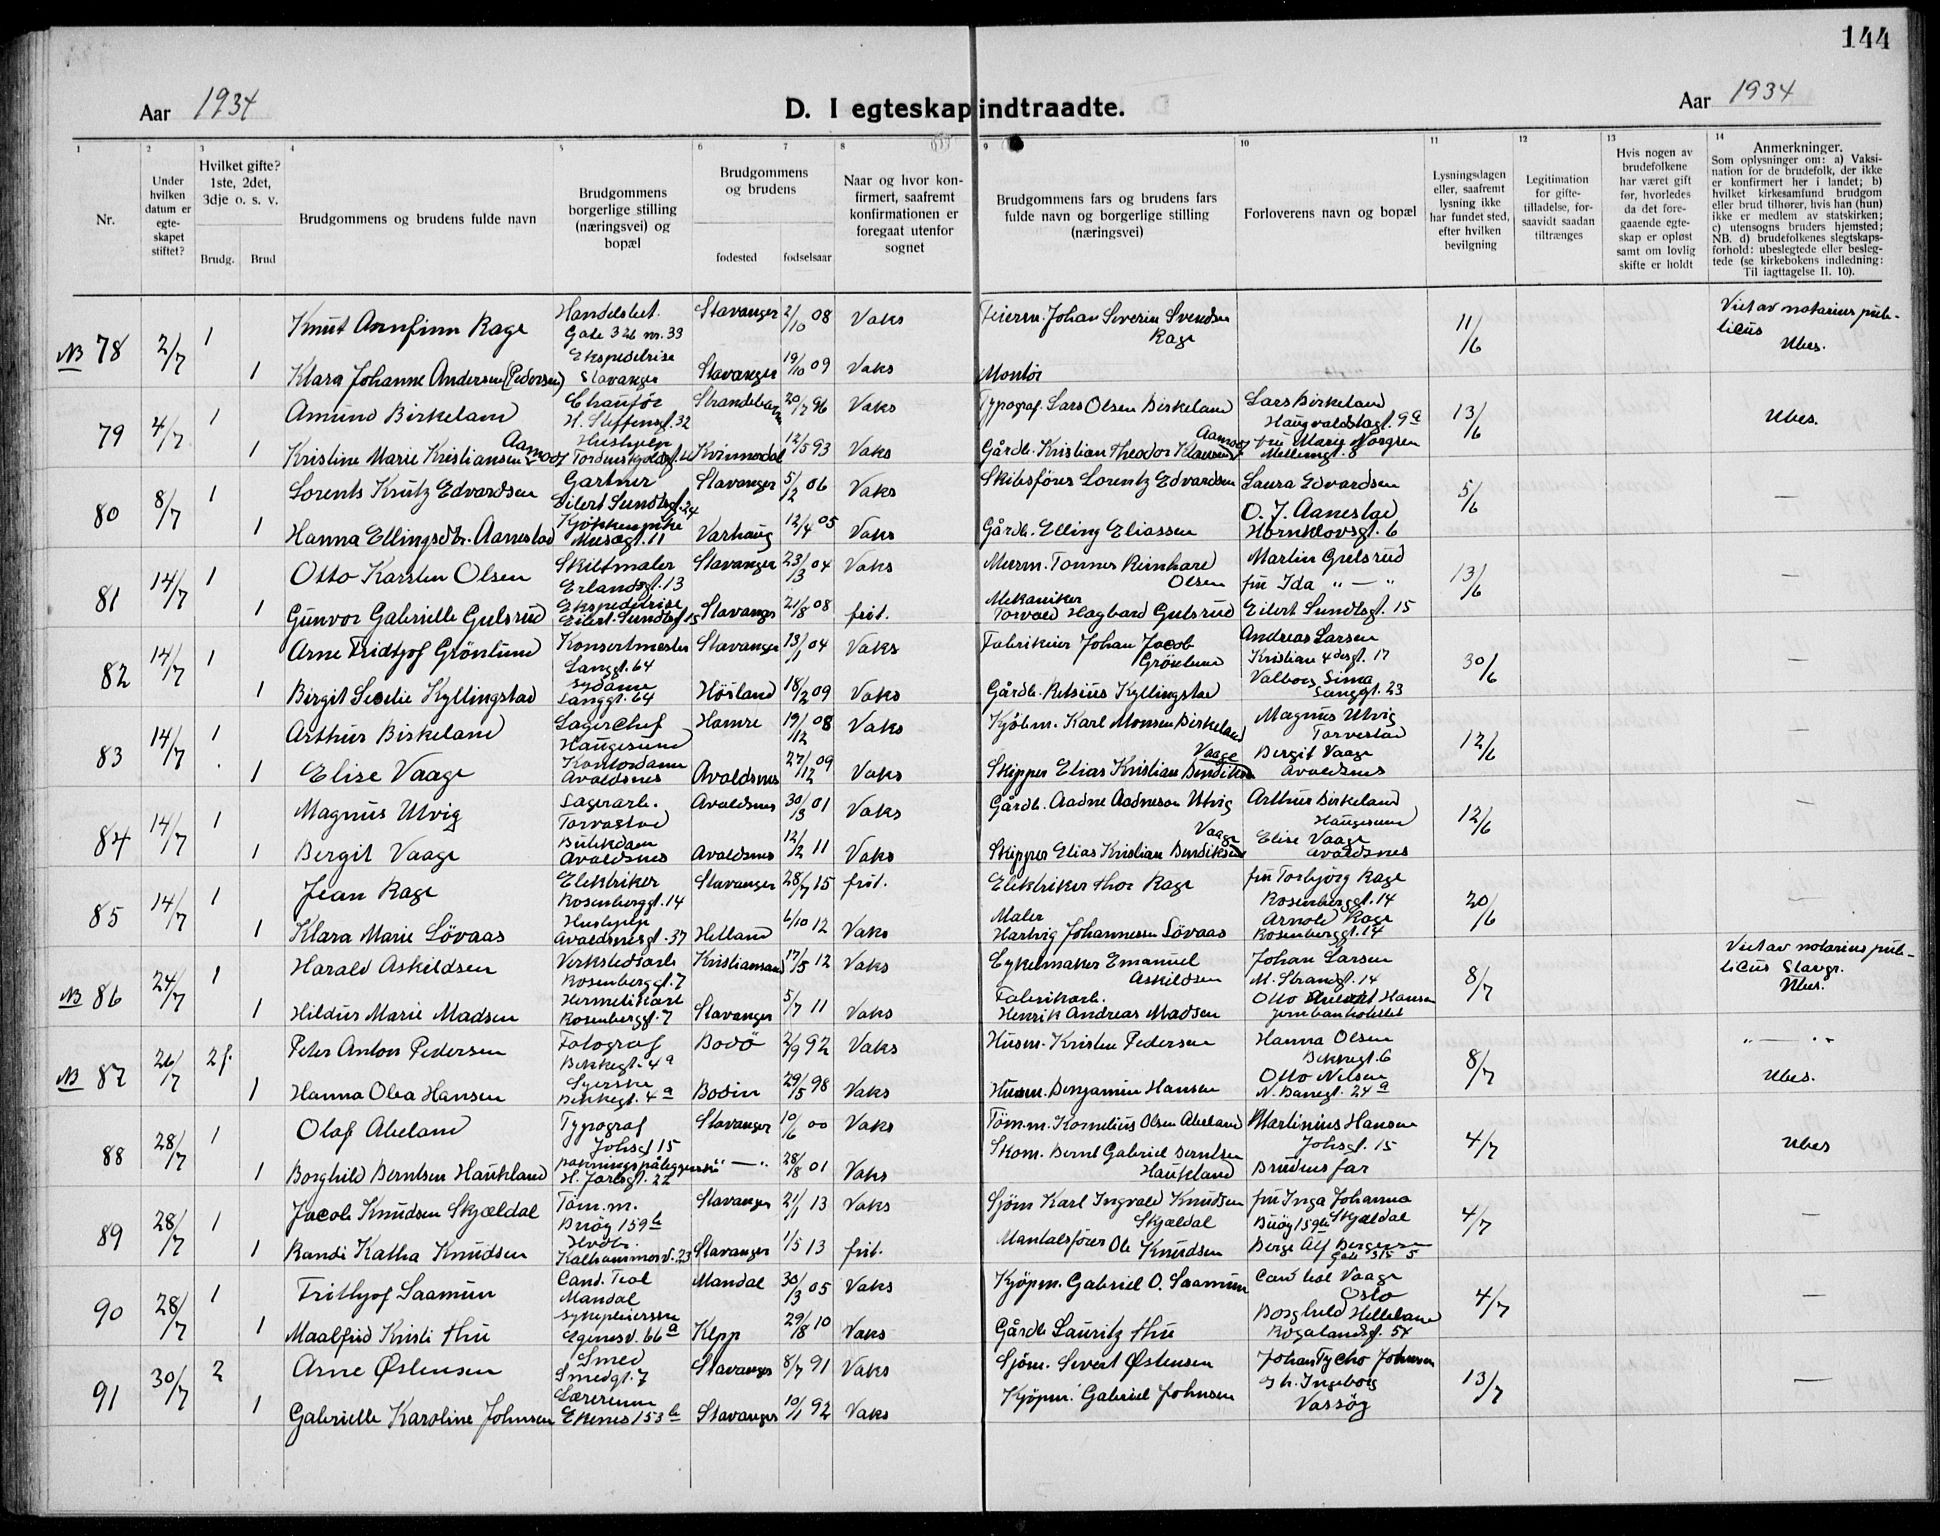 144
Aar 1934
D. I egteskap indtraadte.
Aar 1934
1
2
3
4
5
6
7
8
9
10
11
12
13
14
Nr.
Under hvilken datum er egte- skapet stiftet?
Hvilket gifte? 1ste, 2det, 3dje o. s. v.
Brudg. Brud
Brudgommens og brudens fulde navn
Brudgommens borgerlige stilling (næringsvei) og bopæl
Brudgommens og brudens
fødested fødselsaar
Naar og hvor kon- firmert, saafremt konfirmationen er foregaat utenfor sognet
Brudgommens fars og brudens fars fulde navn og borgerlige stilling (næringsvei)
Forloverens navn og bopæl
Lysningsdagen eller, saafremt lysning ikke har fundet sted, efter hvilken bevilgning
Legitimation for gifte- tilladelse, for- saavidt saadan tiltrænges
Hvis nogen av brudefolkene har været gift før, hvorledes da det fore- gaaende egte- skap er opløst samt om lovlig skifte er holdt
Anmerkninger.
Som oplysninger om: a) Vaksi- nation for de brudefolk, der ikke er konfirmert her i landet; b) hvilket kirkesamfund brudgom eller brud tilhører, hvis han (hun) ikke er medlem av statskirken; c) utensogns bruders hjemsted; NB. d) brudefolkenes slegtskaps- forhold: ubeslegtede eller besleg- tede (se kirkebokens indledning: Til iagttagelse II. 10).
NB 78 2/7 1 Knut Arnfinn Rage Handelsbet. Gate 326 nr. 33 Stavanger 2/10 08 Vaks Feierm. Johan Severin Svendsen Rage 11/6 Viet av notarius publicus Ubes.
1 Klara Johanne Andersen (Pedersen) Ekspeditrise Stavanger Stavanger 19/10 09 Vaks Montør
79 4/7 1 Amund Birkeland Chauffør H. Steffensgt. 32 20/7 96 Vaks Typograf. Lars Olsen Birkeland Lars Birkeland Haugvaldstadgt. 9a 13/6 Ubes.
1 Kristine Marie Kristiansen Aamodt Hushjelp Tordenskjoldsgt. Kvinnerdal 12/5 93 Vaks Gårdb. Kristian Theodor Klausen Aamodt fru Marie Norgren
80 8/7 1 Lorents Krutz Edvardsen Gartner Eilert Sundtsgt. 24 Stavanger 5/12 06 Vaks Skibsfører Lorentz Edvardsen Laura Edvardsen 5/6 —
1 Hanna Ellingsdtr. Aanestad Kjøkkenpike Museegt. 11 Varhaug 12/4 05 Vaks Gårdb. Elling Eliassen O. J. Aanestad Hornklovsgt. 6
81 14/7 1 Otto Karsten Olsen Skiltmaler Erlandsgt. 13 Stavanger 23/3 04 Vaks Murm. Tønnes Reinhard Olsen Martin Gulsrud 13/6 —
1 Gunvor Gabrielle Gulsrud Ekspeditrise Eilert Sundtsgt. 15 Stavanger 21/8 08 frit. Mekaniker Torvald Hagbard Gulsrud fru Ida " — " Eilert Sundtsgt. 15
82 14/7 1 Arne Fridtjof Grönlund Konsertmester Langgt. 64 Stavanger 13/1 04 Vaks Fabrikeier Johan Jacob Grönlund Andreas Larsen Kristian 4des gt. 17 30/6 —
1 Birgit Secelie Kyllingstad Sydame Langgt. 64 Høiland 18/2 09 Vaks Gårdb. Retsius Kyllingstad Valborg Sima Langgt. 23
83 14/7 1 Arthur Birkeland Lagerchef Haugesund Hamre 19/12 08 Vaks Kjöbm. Karl Monsen Birkeland Magnus Utvig Torvestad 12/6 —
1 Elise Vaage Kontordame Avaldsnes Avaldsnes 27/12 09 Vaks Skipper Elias Kristian Bendiksen Vaage Bergit Vaage Avaldsnes
84 14/7 1 Magnus Utvig Lagerarb. Torvastad Avaldsnes 30/3 01 Vaks Gårdb. Aadne Aadneson Utvig Arthur Birkeland Haugesund 12/6 —
1 Bergit Vaage Butikdam Avaldsnes Avaldsnes 12/2 11 Vaks Skipper Elias Kristian Bendiksen Vaage Elise Vaage Avaldsnes
85 14/7 1 Jean Rage Elektriker Rosenberggt. 14 Stavanger 28/7 15 frit. Elektriker Thor Rage fru Torbjörg Rage Rosenberggt. 14 20/6 —
1 Klara Marie Lövaas Hushjelp Avaldsnesgt. 37 Hetland 6/10 12 Vaks Maler Hartvig Johannessen Lövaas Arnold Rage Rosenberggt. 14
NB 86 24/7 1 Harald Askildsen Verkstedsarb Rosenberggt. 7 Kristiansand 17/5 12 Vaks Cykelmaker Emanuel Askildsen Johan Larsen M. Strandgt. 14 8/7 Viet av notarius publicus Stavgr. Ubes.
1 Hildur Marie Madsen Hermetikarb Rosenberggt. 7 Stavanger 5/7 11 Vaks Fabrikarb. Henrik Andreas Madsen Otto Hansen Jernbanhotellet
NB 87 26/7 2f. Peter Anton Pedersen Fotograf Bekkegt. 4a Bodö 2/9 92 Vaks Husm. Kristen Pedersen Hanna Olsen Bekkegt. 6 8/7 " — "
1 Hanna Olea Hansen Syerske Bekkegt. 4a Bodin 29/5 98 Vaks Husm. Benjamin Hansen Otto Nilsen N. Banegt. 24a Ubes.
88 28/7 1 Olaf Abeland Typograf Johsgt 15 Stavanger 10/6 00 Vaks Töm.m. Kornelius Olsen Abeland Martinius Hansen Johsgt. 15 4/7 Ubes
1 Borghild Berntsen Haukland H. Jarlsgt. 22 " — " 28/8 01 Vaks Skom. Bernt Gabriel Berntsen Haukland Brudens far
89 28/7 1 Jacob Knudsen Skjældal Töm.m. Buöy 159b Stavanger 21/1 13 Vaks Sjöm Karl Ingvald Knudsen Skjældal fru Inga Johanna Skjældal Buöy 159b 4/7 —
1 Randi Katha Knudsen Kalhammerv. 23 Stavanger 1/5 13 frit. Mantalsfører Ole Knudsen Berge Alf Bergesen Gate 315 5
90 28/7 1 Frithjof Saamun Cand. Teol Mandal Mandal 30/3 05 Vaks Kjöpm. Gabriel O. Saamun Cand teol Vaage Oslo 4/7 —
1 Maalfrid Kristi Thu Sykepleierske Egenesv. 66a Klepp 29/8 10 Vaks Gårdb Lauritz Thu Borghild Helleland Rogalandsgt. 54
91 30/7 2 Arne Østensen Smed Smedgt. 7 Stavanger 8/7 91 Vaks Sjöm. Severt Østensen Johan Tycho Johnsen 13/7 —
1 Gabrielle Karoline Johnsen Lærerinne Ekenes 153b Stavanger 10/1 92 Vaks Kjöpm. Gabriel Johnsen Ingeborg Vassöy